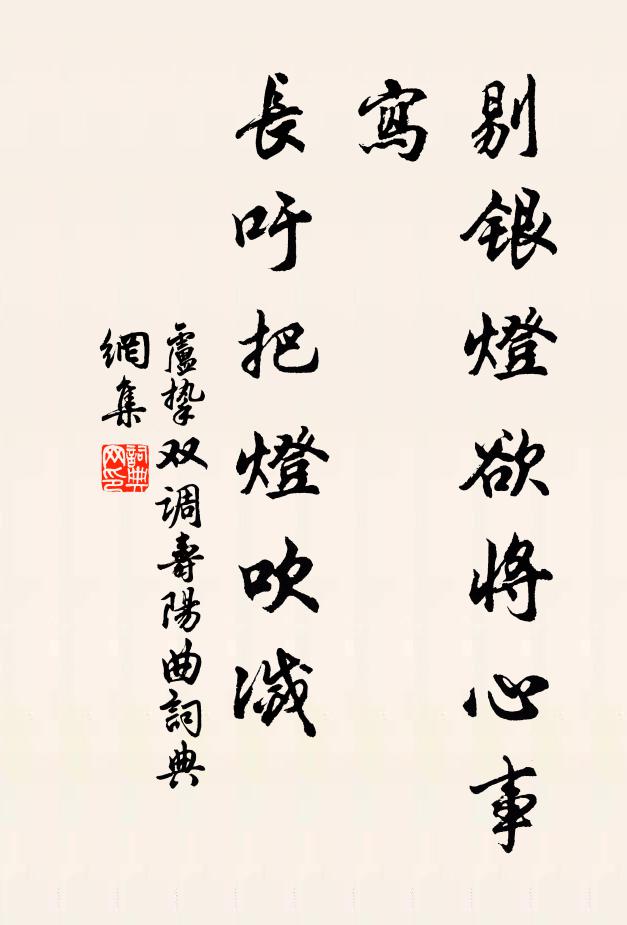 剔銀燈欲將心事
寫
長吁把燈吹滅
盧摯双调壽陽曲詞典
網集
詞典網印